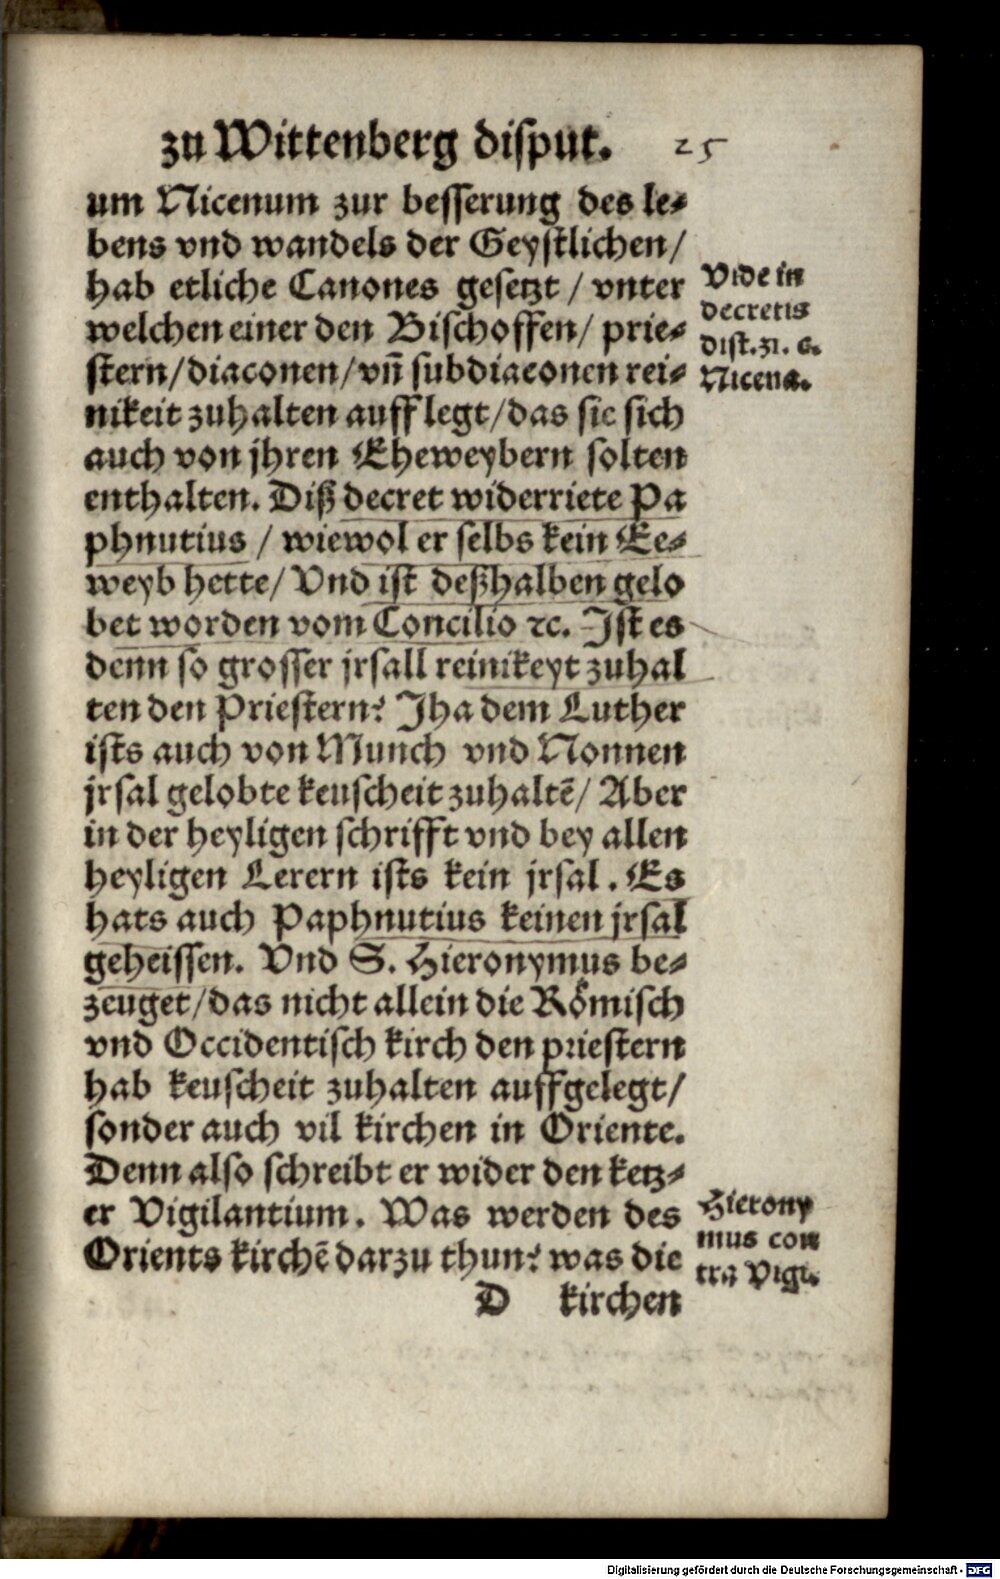 zu Wittenberg disput. 25
um Nicenum zur besserung des le⸗
bens vnd wandels der Geystlichen/
hab etliche Canones gesetzt / vnter
welchen einer den Bischoffen/ prie⸗
stern/diaconen/vn̄ subdiaconen rei⸗
nikeit zuhalten auff legt/das sie sich
auch von jhren Eheweybern solten
enthalten. Diß decret widerriete Pa
phnutius / wiewol er selbs kein Ee⸗
weyb hette/ Vnd ist deßhalben gelo
bet worden vom Concilio ꝛc. Jst es
denn so grosser jrsall reinikeyt zuhal
ten den Priestern? Jha dem Luther
ists auch von Munch vnd Nonnen
jrsal gelobte keuscheit zuhaltē/ Aber
in der heyligen schrifft vnd bey allen
heyligen Lerern ists kein jrsal. Es
hats auch Paphnutius keinen jrsal
geheissen. Vnd S. Hieronymus be⸗
zeuget/das nicht allein die Roͤmisch
vnd Occidentisch kirch den priestern
hab keuscheit zuhalten auffgelegt/
sonder auch vil kirchen in Oriente.
Denn also schreibt er wider den ketz⸗
er Vigilantium. Was werden des
Orients kirchē darzu thun? was die
D kirchen
Vide in
decretis
dist. 31. c.
Nicena.
Hierony
mus con
tra Vigi.
Digitalisierung gefördert durch die Deutsche Forschungsgemeinschaft - DFG